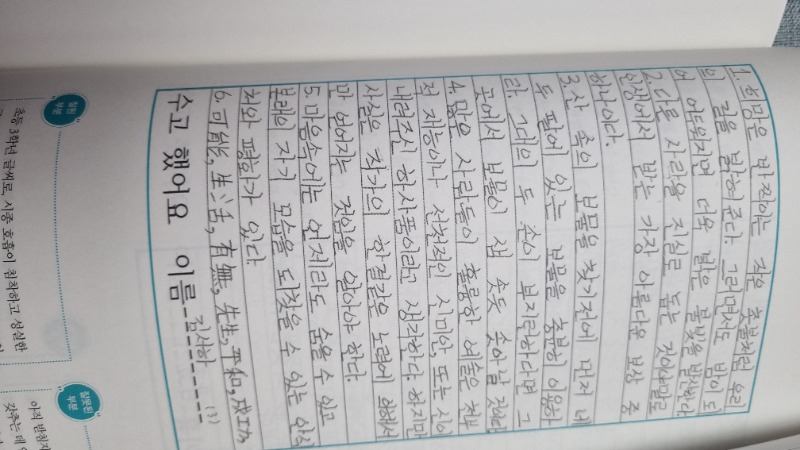 1. 희망은 반짝이는 작은 촛불처럼 우리
의 길을 밝혀준다. 그러면서도 밤이 되
어 어두워지면 더욱 밝은 불빛을 발산한다.
2. 다른 사람을 진실로 돕는 것이야말로
인생에서 받는 가장 아름다운 보상 중
하나이다.
3. 산 속의 보물을 찾기전에 먼저 네
두 팔에 있는 보물을 충분히 이용하
라. 그대의 두 손이 부지런하다면 그
곳에서 보물이 샘 솟듯 솟아날 것이다
4. 많은 사람들이 훌륭한 예술은 천부
적 재능이나 선천적인 심미안, 또는 신이
내려주신 하사품이라고 생각한다. 하지만
사실은 작가의 한결같은 노력에 의해서
만 얻어지는 것임을 알아야 한다.
5. 마음속에는 언제라도 숨을 수 있고
본래의 자기 모습을 되찾을 수 있는 안식
처와 평화가 있다.
6. 可能, 生活, 有無, 先生, 平和, 成功,
수고 했어요 이름 김사하
(3)
잘된 부분
초등 3학년 글씨로, 시종 호흡이 침착하고 성실한
잘못된 부분
아직 받침자
갖추는 데